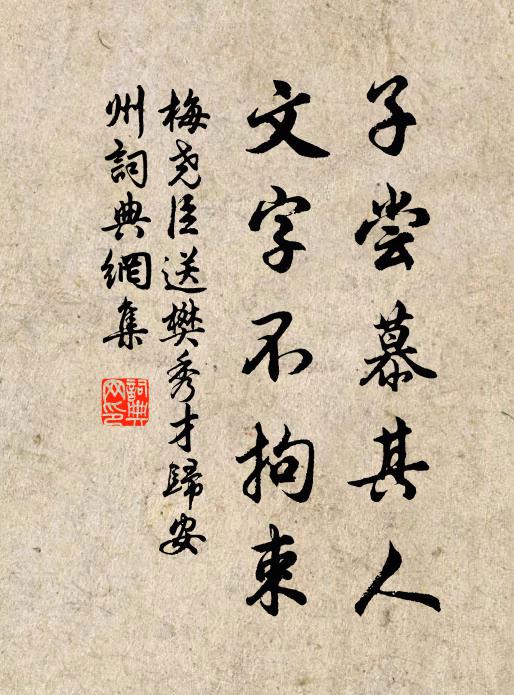 子尝慕其人
文字不拘束
梅尧臣送樊秀才歸安
州詞典網集
詞典
网印